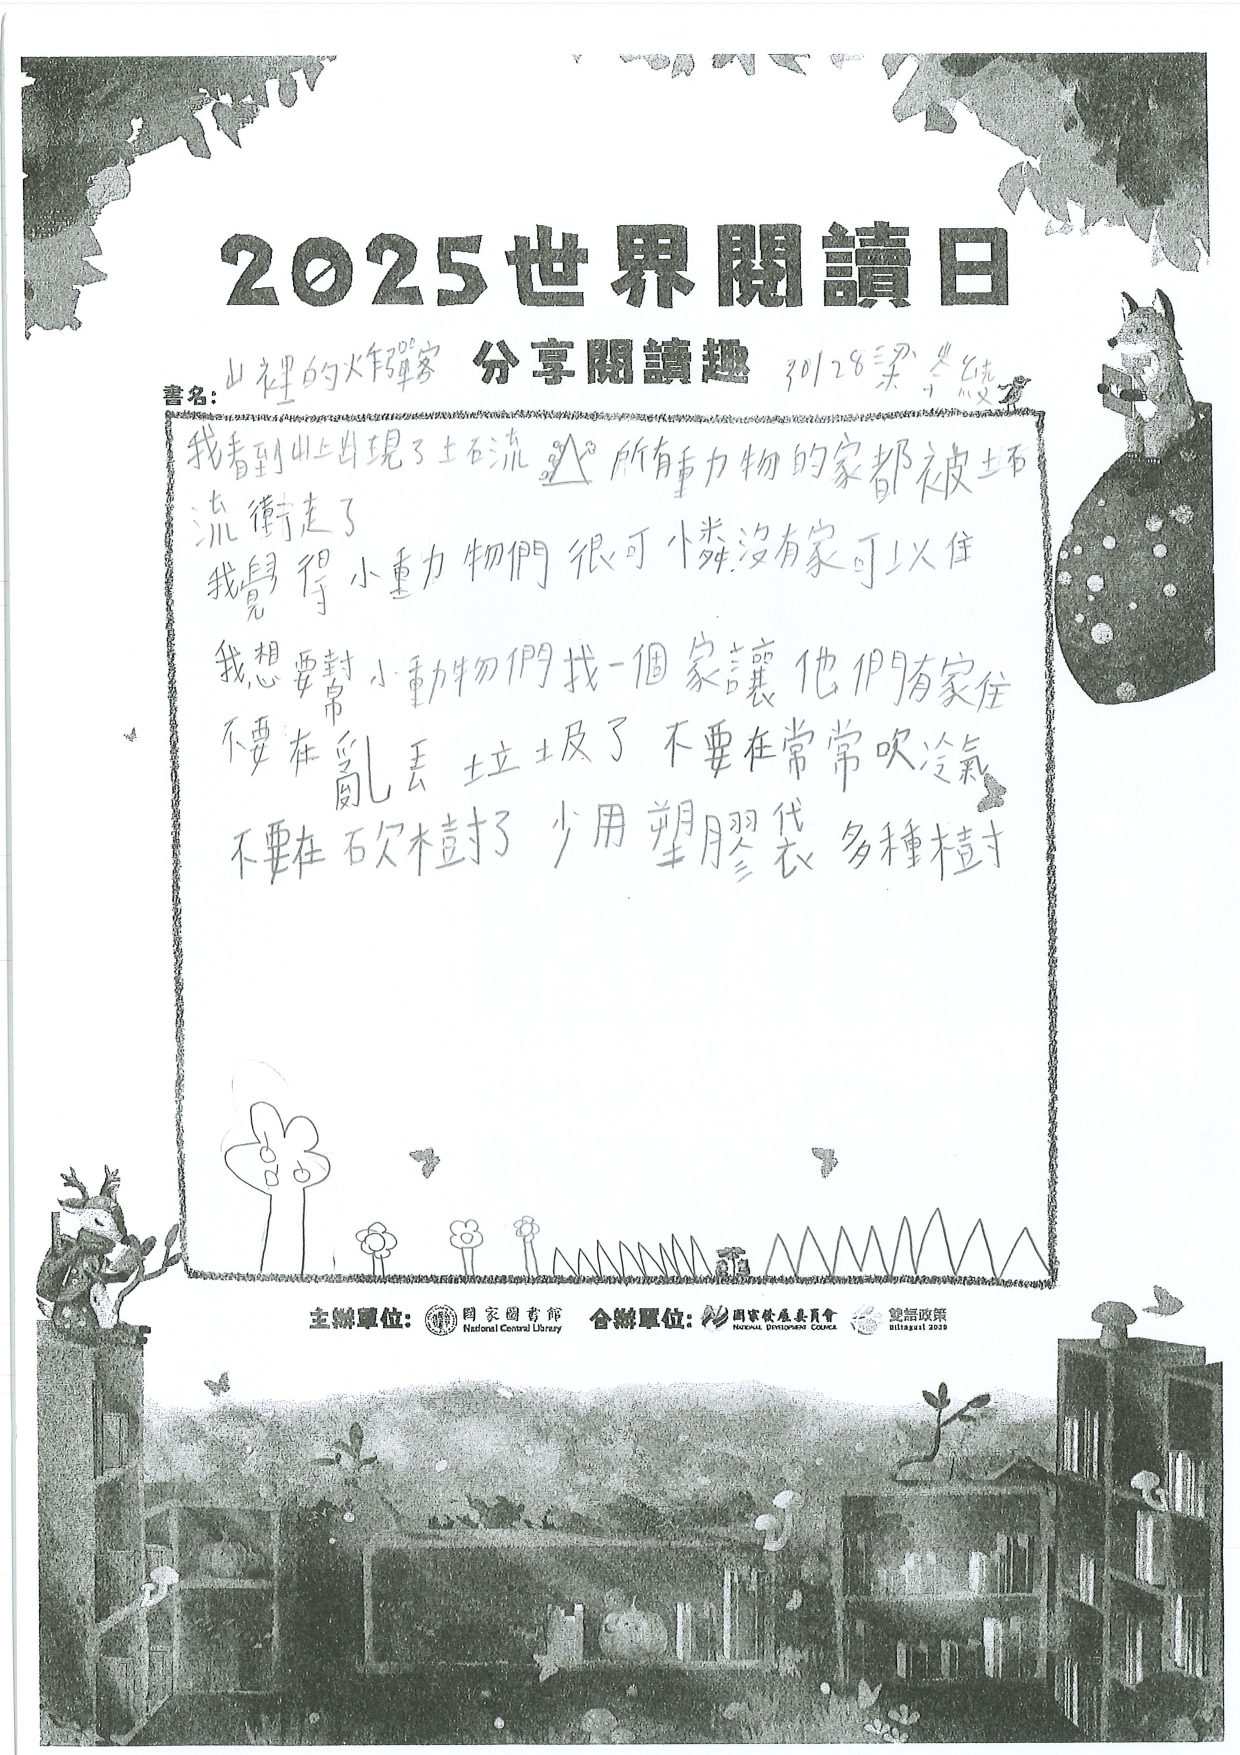 2025世界閱讀日
分享閱讀趣
書名: 山裡的炸彈客
30128梁
我看到山上出現了土石流 所有動物的家都被土石
流衝走了
我覺得小動物們很可憐沒有家可以住
我想要幫小動物們找一個家讓他們有家住
不要在亂丟垃圾了 不要在常常吹冷氣
不要在砍樹了 少用塑膠袋 多種樹
主辦單位: 國家圖書館 National Central Library 合辦單位: 國家發展委員會 NATIONAL DEVELOPMENT COUNCIL 雙語政策 Bilingual 2030